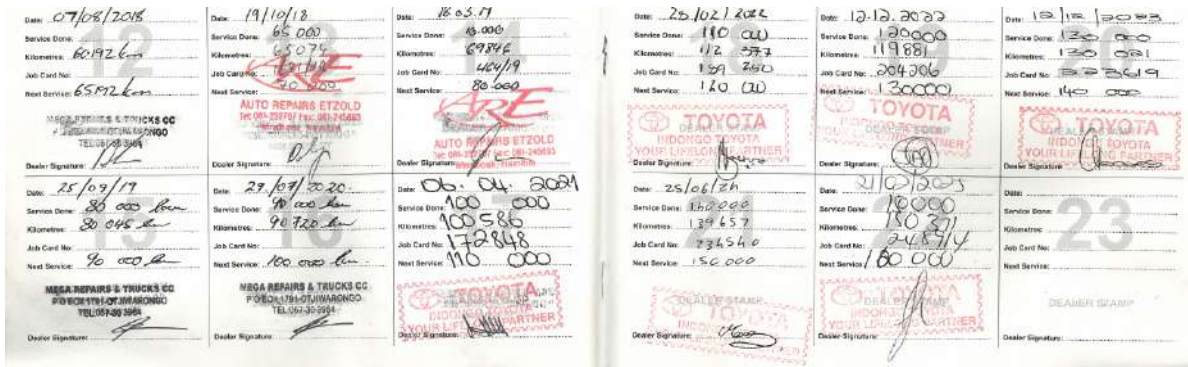 Date: 07/08/2018
Service Done:
Kilometres: 60192 km
Job Card No:
Next Service: 65192 km
12
MEGA REPAIRS & TRUCKS CC
Dealer Signature:
Date: 19/10/18
Service Done: 65 000
Kilometres: 65074
Job Card No:
Next Service: 70 000
ARE
AUTO REPAIRS ETZOLD
Dealer Signature:
Date: 18.03.19
Service Done:
Kilometres: 69846
Job Card No: 464/19
Next Service: 80.000
ARE
AUTO REPAIRS ETZOLD
Windhoek - Namibia
Dealer Signature:
Date: 25/09/19
Service Done: 80 000 km
Kilometres: 80 045 km
Job Card No:
Next Service: 90 000 km
15
MEGA REPAIRS & TRUCKS CC
P O BOX 1791-OTJIWARONGO
Dealer Signature:
Date: 29/07/2020.
Service Done: 90 000 km
Kilometres: 90 720 km
Job Card No:
Next Service: 100 000 km.
16
MEGA REPAIRS & TRUCKS CC
P O BOX 1791-OTJIWARONGO
Dealer Signature:
Date: 06. 04. 2021
Service Done: 100 000
Kilometres: 100 586
Job Card No: 172848
Next Service: 110 000
TOYOTA
INDONGO TOYOTA
YOUR LIFELONG PARTNER
Dealer Signature:
Date: 25/02/2022
Service Done: 110 000
Kilometres: 112 377
Job Card No: 189 250
Next Service: 120 000
TOYOTA
DEALER STAMP
INDONGO TOYOTA
YOUR LIFELONG PARTNER
Dealer Signature:
Date: 12.12.2022
Service Done: 120000
Kilometres: 119881
Job Card No: 204206
Next Service: 130000
TOYOTA
DEALER STAMP
INDONGO TOYOTA
YOUR LIFELONG PARTNER
Dealer Signature:
Date: 12/12/2023
Service Done: 130 000
Kilometres: 130 021
Job Card No: 223619
Next Service: 140 000
TOYOTA
DEALER STAMP
INDONGO TOYOTA
YOUR LIFELONG PARTNER
Dealer Signature:
Date: 25/06/24
Service Done: 140 000
Kilometres: 139657
Job Card No: 234540
Next Service: 150 000
DEALER STAMP
TOYOTA
Dealer Signature:
Date:
Service Done:
Kilometres:
Job Card No:
Next Service:
TOYOTA
DEALER STAMP
INDONGO TOYOTA
YOUR LIFELONG PARTNER
Dealer Signature:
Date:
Service Done:
Kilometres:
Job Card No:
Next Service:
23
DEALER STAMP
Dealer Signature: